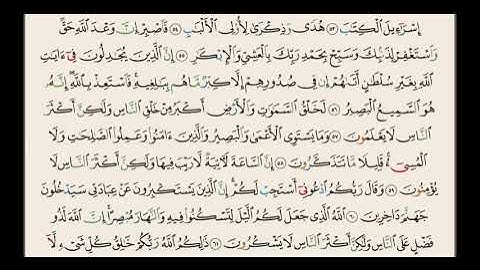 إِسْرَٰٓءِيلَ ٱلْكِتَٰبَ ٥٣ هُدًى وَذِكْرَىٰ لِأُو۟لِى ٱلْأَلْبَٰبِ ٥٤ فَٱصْبِرْ إِنَّ وَعْدَ ٱللَّهِ حَقٌّ
وَٱسْتَغْفِرْ لِذَنۢبِكَ وَسَبِّحْ بِحَمْدِ رَبِّكَ بِٱلْعَشِىِّ وَٱلْإِبْكَٰرِ ٥٥ إِنَّ ٱلَّذِينَ يُجَٰدِلُونَ فِىٓ ءَايَٰتِ
ٱللَّهِ بِغَيْرِ سُلْطَٰنٍ أَتَىٰهُمْ إِن فِى صُدُورِهِمْ إِلَّا كِبْرٌ مَّا هُم بِبَٰلِغِيهِ فَٱسْتَعِذْ بِٱللَّهِ إِنَّهُۥ
هُوَ ٱلسَّمِيعُ ٱلْبَصِيرُ ٥٦ لَخَلْقُ ٱلسَّمَٰوَٰتِ وَٱلْأَرْضِ أَكْبَرُ مِنْ خَلْقِ ٱلنَّاسِ وَلَٰكِنَّ أَكْثَرَ
ٱلنَّاسِ لَا يَعْلَمُونَ ٥٧ وَمَا يَسْتَوِى ٱلْأَعْمَىٰ وَٱلْبَصِيرُ وَٱلَّذِينَ ءَامَنُوا۟ وَعَمِلُوا۟ ٱلصَّٰلِحَٰتِ وَلَا
ٱلْمُسِىٓءُ قَلِيلًا مَّا تَتَذَكَّرُونَ ٥٨ إِنَّ ٱلسَّاعَةَ لَءَاتِيَةٌ لَّا رَيْبَ فِيهَا وَلَٰكِنَّ أَكْثَرَ ٱلنَّاسِ لَا
يُؤْمِنُونَ ٥٩ وَقَالَ رَبُّكُمُ ٱدْعُونِىٓ أَسْتَجِبْ لَكُمْ إِنَّ ٱلَّذِينَ يَسْتَكْبِرُونَ عَنْ عِبَادَتِى سَيَدْخُلُونَ
جَهَنَّمَ دَاخِرِينَ ٦٠ ٱللَّهُ ٱلَّذِى جَعَلَ لَكُمُ ٱلَّيْلَ لِتَسْكُنُوا۟ فِيهِ وَٱلنَّهَارَ مُبْصِرًا إِنَّ ٱللَّهَ لَذُو
فَضْلٍ عَلَى ٱلنَّاسِ وَلَٰكِنَّ أَكْثَرَ ٱلنَّاسِ لَا يَشْكُرُونَ ٦١ ذَٰلِكُمُ ٱللَّهُ رَبُّكُمْ خَٰلِقُ كُلِّ شَىْءٍ لَّآ